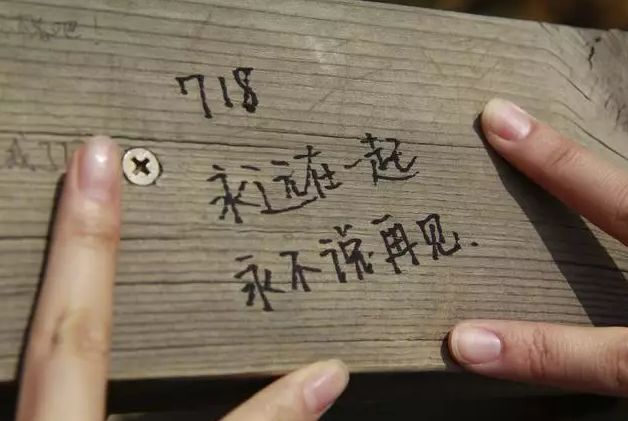 718
永远在一起
永不说再见.